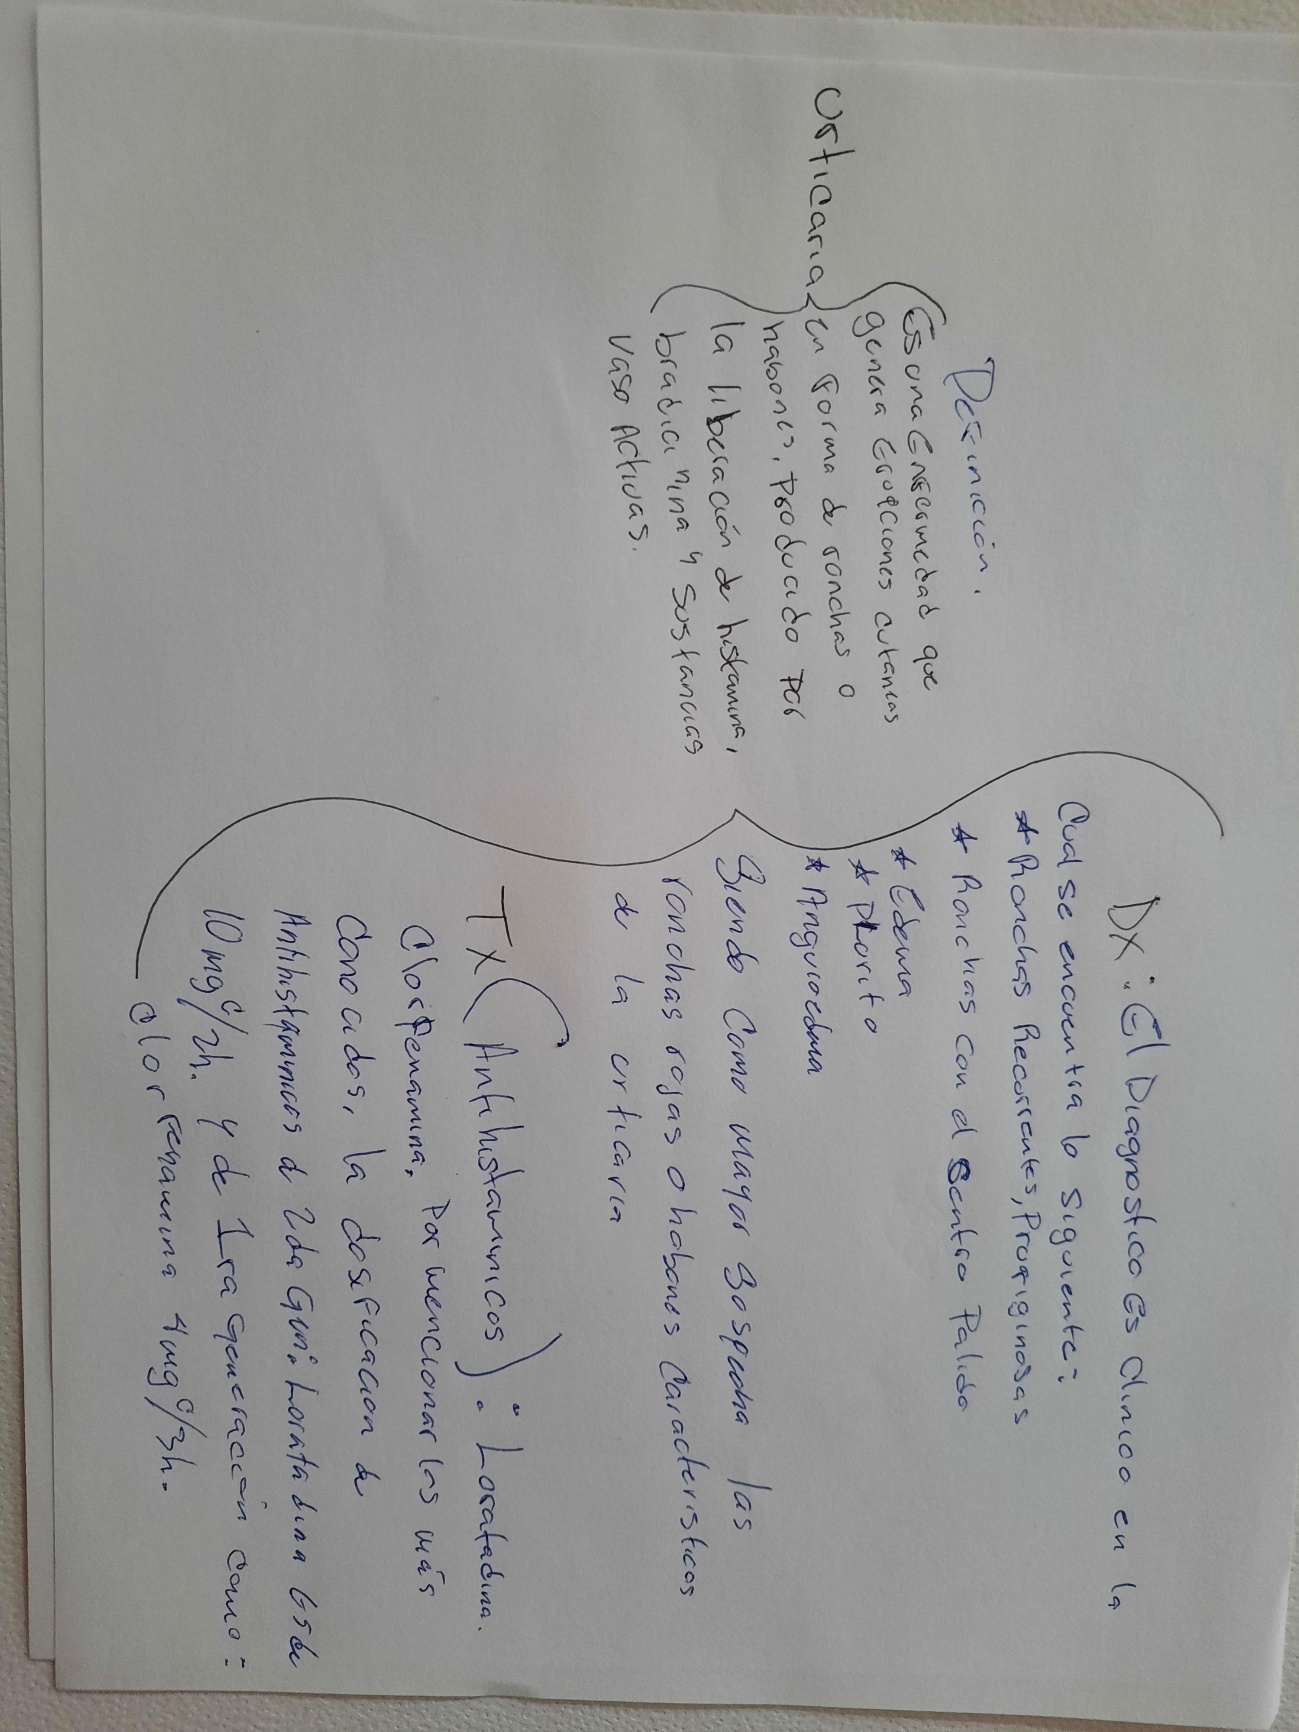 Urticaria
Definición.
Es una Enfermedad que
genera Erupciones cutaneas
en forma de ronchas o
habones, Producido por
la liberación de histamina,
bradicinina y sustancias
vaso Activas.
DX: El Diagnostico Es clinico en la
Cual se encuentra lo siguiente:
* Ronchas Recurrentes, Pruriginosas
* Ronchas con el Sentro Palido
* Edema
* Prurito
* Angioedema
Siendo Como mayor Sospecha las
ronchas rojas o habones Caracteristicos
de la urticaria
Tx (Antihistaminicos): Loratadina.
Clorfenamina, Por mencionar las más
Conocidas, la dosificacion de
Antihistaminicos d 2da Gen: Loratadina Es de
10mg c/2h. y de 1ra generación como:
Clorfenamina 4mg c/3h.